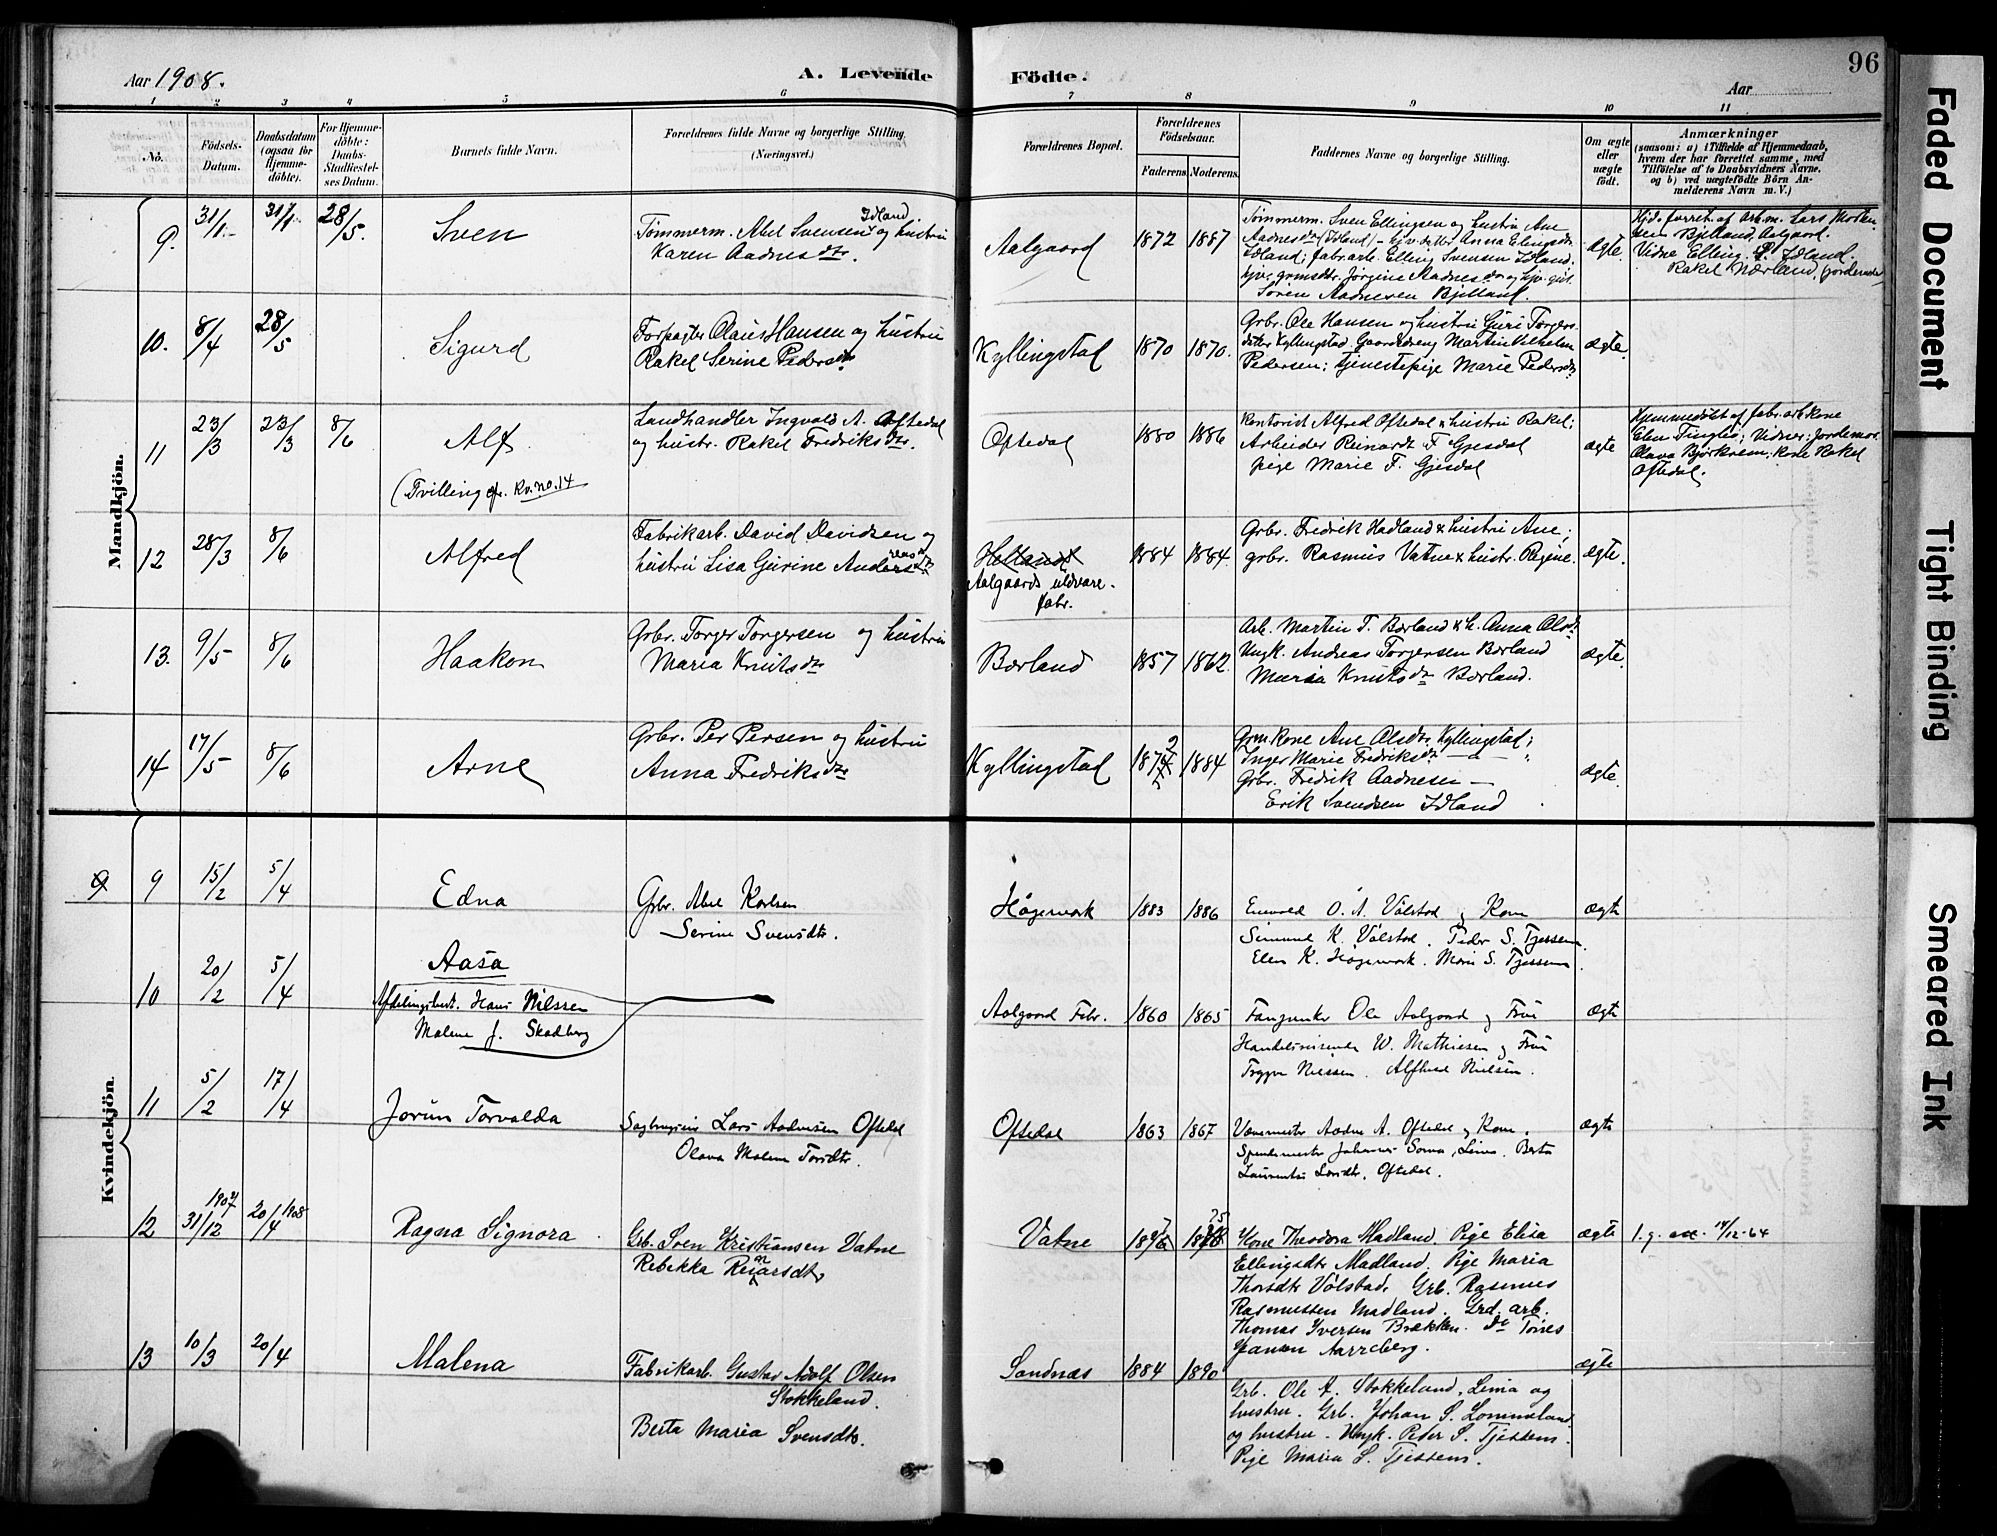 96
Aar 1908.
A. Levende
Födte.
Aar
1 2 3 4 5 6 7 8 9 10 11
No.
Födsels-
Datum.
Daabsdatum
(ogsaa for
Hjemme-
döbte).
For Hjemme-
döbte:
Daabs-
Stadfæstel-
ses Datum.
Barnets fulde Navn.
Forældrenes fulde Navne og borgerlige Stilling.
(Næringsvei.)
Forældrenes Bopæl.
Forældrenes
Födselsaar.
Faderens. Moderens.
Faddernes Navne og borgerlige Stilling.
Om ægte
eller
uægte
födt.
Anmærkninger
(saasom: a) i Tilfælde af Hjemmedaab,
hvem der har forrettet samme, med
Tilföielse af to Daabsvidners Navne.
og b) ved uægtefödte Börn An-
melderens Navn m. V.)
Mandkjön.
9. 31/1. 31/1. 28/5.
Sven
Tømmerm. Abel Svensen Idland og hustru
Karen Aadnesdtr.
Aalgaard 1872 1887
Tømmerm. Sven Ellingsen og hustru Ane
Aadnesdtr (Idland) – hjv. dtr. Anna Elingsdtr
Idland; fabr. arb. Elling Svensen Idland.
hjv. grmsdtr. Jørgine Aadnesdtr og hjv. gut
Søren Aadnesen Bjelland.
ægte.
Hjd. forret. af arb.m. Lars Morten-
sen Bjelland, Aalgaard.
Vidne Elling S. Idland.
Rakel Nærland, (jordemoder)
10. 8/4 28/5
Sigurd
Forpagter Olaus Hansen og hustru
Rakel Serine Pedersdtr
Kyllingstad 1870 1870.
Grbr. Ole Hansen og hustru Guri Torgers-
datter Kyllingstad. Gaardsdreng Martin Vilhelm
Pedersen; tjenestepige Marie Pedersdtr
ægte.
11 23/3 23/3 8/6
Alf
(Tvilling cfr. Kv. no. 14
Landhandler Ingvald A. Oftedal
og hustr. Rakel Fredriksdtr.
Oftedal 1880 1886
Kontorist Alfred Oftedal & hustru Rakel;
Arbeider Reinardt F. Gjesdal
pige Marie F. Gjesdal
ægte
Hjemmedøbt af fabr. arb. kone
Elen Tinglos; Vidner: Jordemor
Olava Bjørkrem; kone Rakel
Oftedal.
12 28/3 8/6
Alfred
Fabrikarb. David Davidsen og
hustru Lisa Gurine Andersdtr
Helland
Aalgaards uldvare-
fabr.
1884 1884.
Grbr. Fredrik Hadland & hustru Ane;
grbr. Rasmus Vatne & hustr. Regine.
ægte.
13. 9/5 8/6
Haakon
Grbr. Torger Torgersen og hustru
Maria Knutsdtr
Bærland 1857 1862.
Arb. Martin T. Bærland & h. Anna Olsdtr
Ungk. Andreas Torgersen Bærland
Maria Knutsdtr Bærland.
ægte.
14 17/5 8/6
Arne
Grbr. Per Persen og hustru
Anna Fredriksdtr
Kyllingstad 1872 1884
Grmkone Ane Olsdtr. Kyllingstad;
Inger Marie Fredriksdtr – " – ;
Grbr. Fredrik Aadnesen –
Erik Svendsen Idland.
ægte.
Kvindekjön.
9 9 15/2 5/4
Edna
Grbr. Abel Karlsen
Serine Svensdtr.
Høgemork 1883 1886
Enevald O. A. Vølstad og Kone
Simund K. Vølstad. Peder S. Tjessem.
Elen K. Høgemork. Marie S. Tjessem.
ægte
10 20/2 5/4
Aasa
Afdelingsbest. Hans Nilssen
Malene J. Skadberg
Aalgaard Fabr. 1860 1865
Ole Aalgaard og Frue
Handelsreisende W. Mathiesen og Frue
Trygve Nilssen. Alfhild Nielsen.
ægte
11 5/2 17/4
Jorun Torvalda
Lars Aadnesen Oftedal
Olava Malene Torsdtr.
Oftedal 1863 1867
Vævemester Aadne A. Oftedal og Kone.
Spindemester Johannes Soma, Lima. Berta
Laurentse Larsdtr. Oftedal.
ægte
12 1907 31/12 20/4 1908
Ragna Signora.
Grb. Sven Kristiansen Vatne
Rebekka Reiarsdtr
Vatne 1876 1878 75
Kone Theodora Madland. Pige Elisa
Ellingsdtr Madland. Pige Maria
Thorsdtr Vølstad. Grb. Rasmus
Rasmussen Madland. Grd. arb.
Thomas Iversen Brækken. Do Tønes
Jansen Aarreberg.
ægte
l. g. att. 14/12-64
13 10/3 20/4
Malena
Fabrikarb. Gustav Adolf Olsen
Stokkeland.
Berta Maria Svensdtr.
Sandnæs 1884 1890
Grb. Ole A. Stokkeland, Lima og
hustru. Grb. Johan S. Lommeland
og hustru. Ungk. Peder S. Tjessem.
Pige Maria S. Tjessem.
ægte
Faded Document
Tight Binding
Smeared Ink